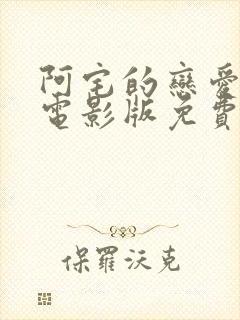 阿宅的戀愛
電影版免費
保羅沃克